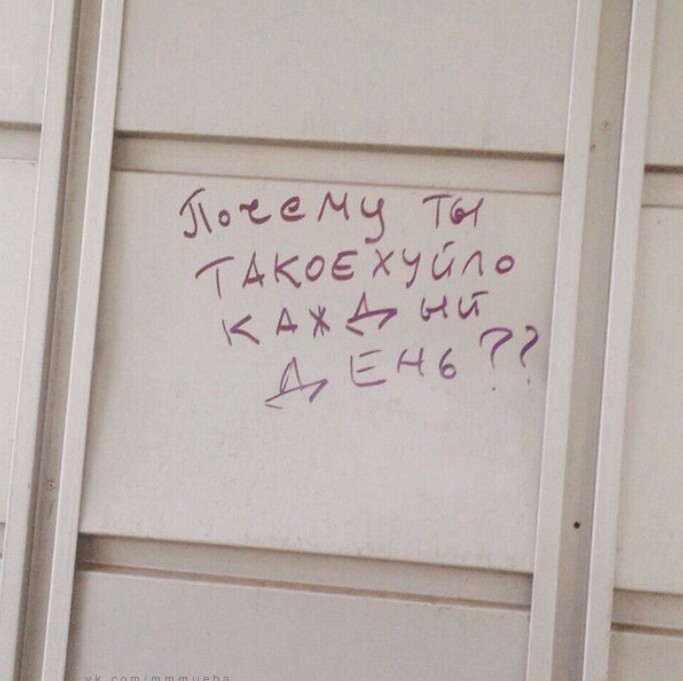 Почему ты
ТАКОЕ ХУЙЛО
КАЖДЫЙ
ДЕНЬ??
vk.com/mmmueba